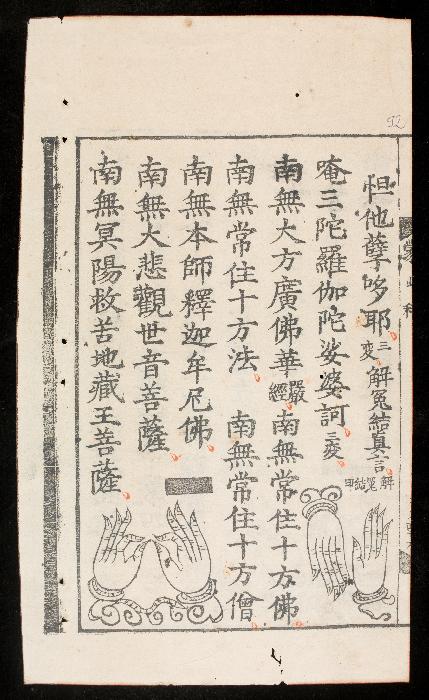 92
怛他孽哆耶三変 解冤結真言 解冤結印
唵三陀羅伽陀娑婆訶三変
南無大方廣佛華嚴經 南無常住十方佛
南無常住十方法 南無常住十方僧
南無本師釋迦牟尼佛
南無大悲觀世音菩薩
南無冥陽救苦地藏王菩薩